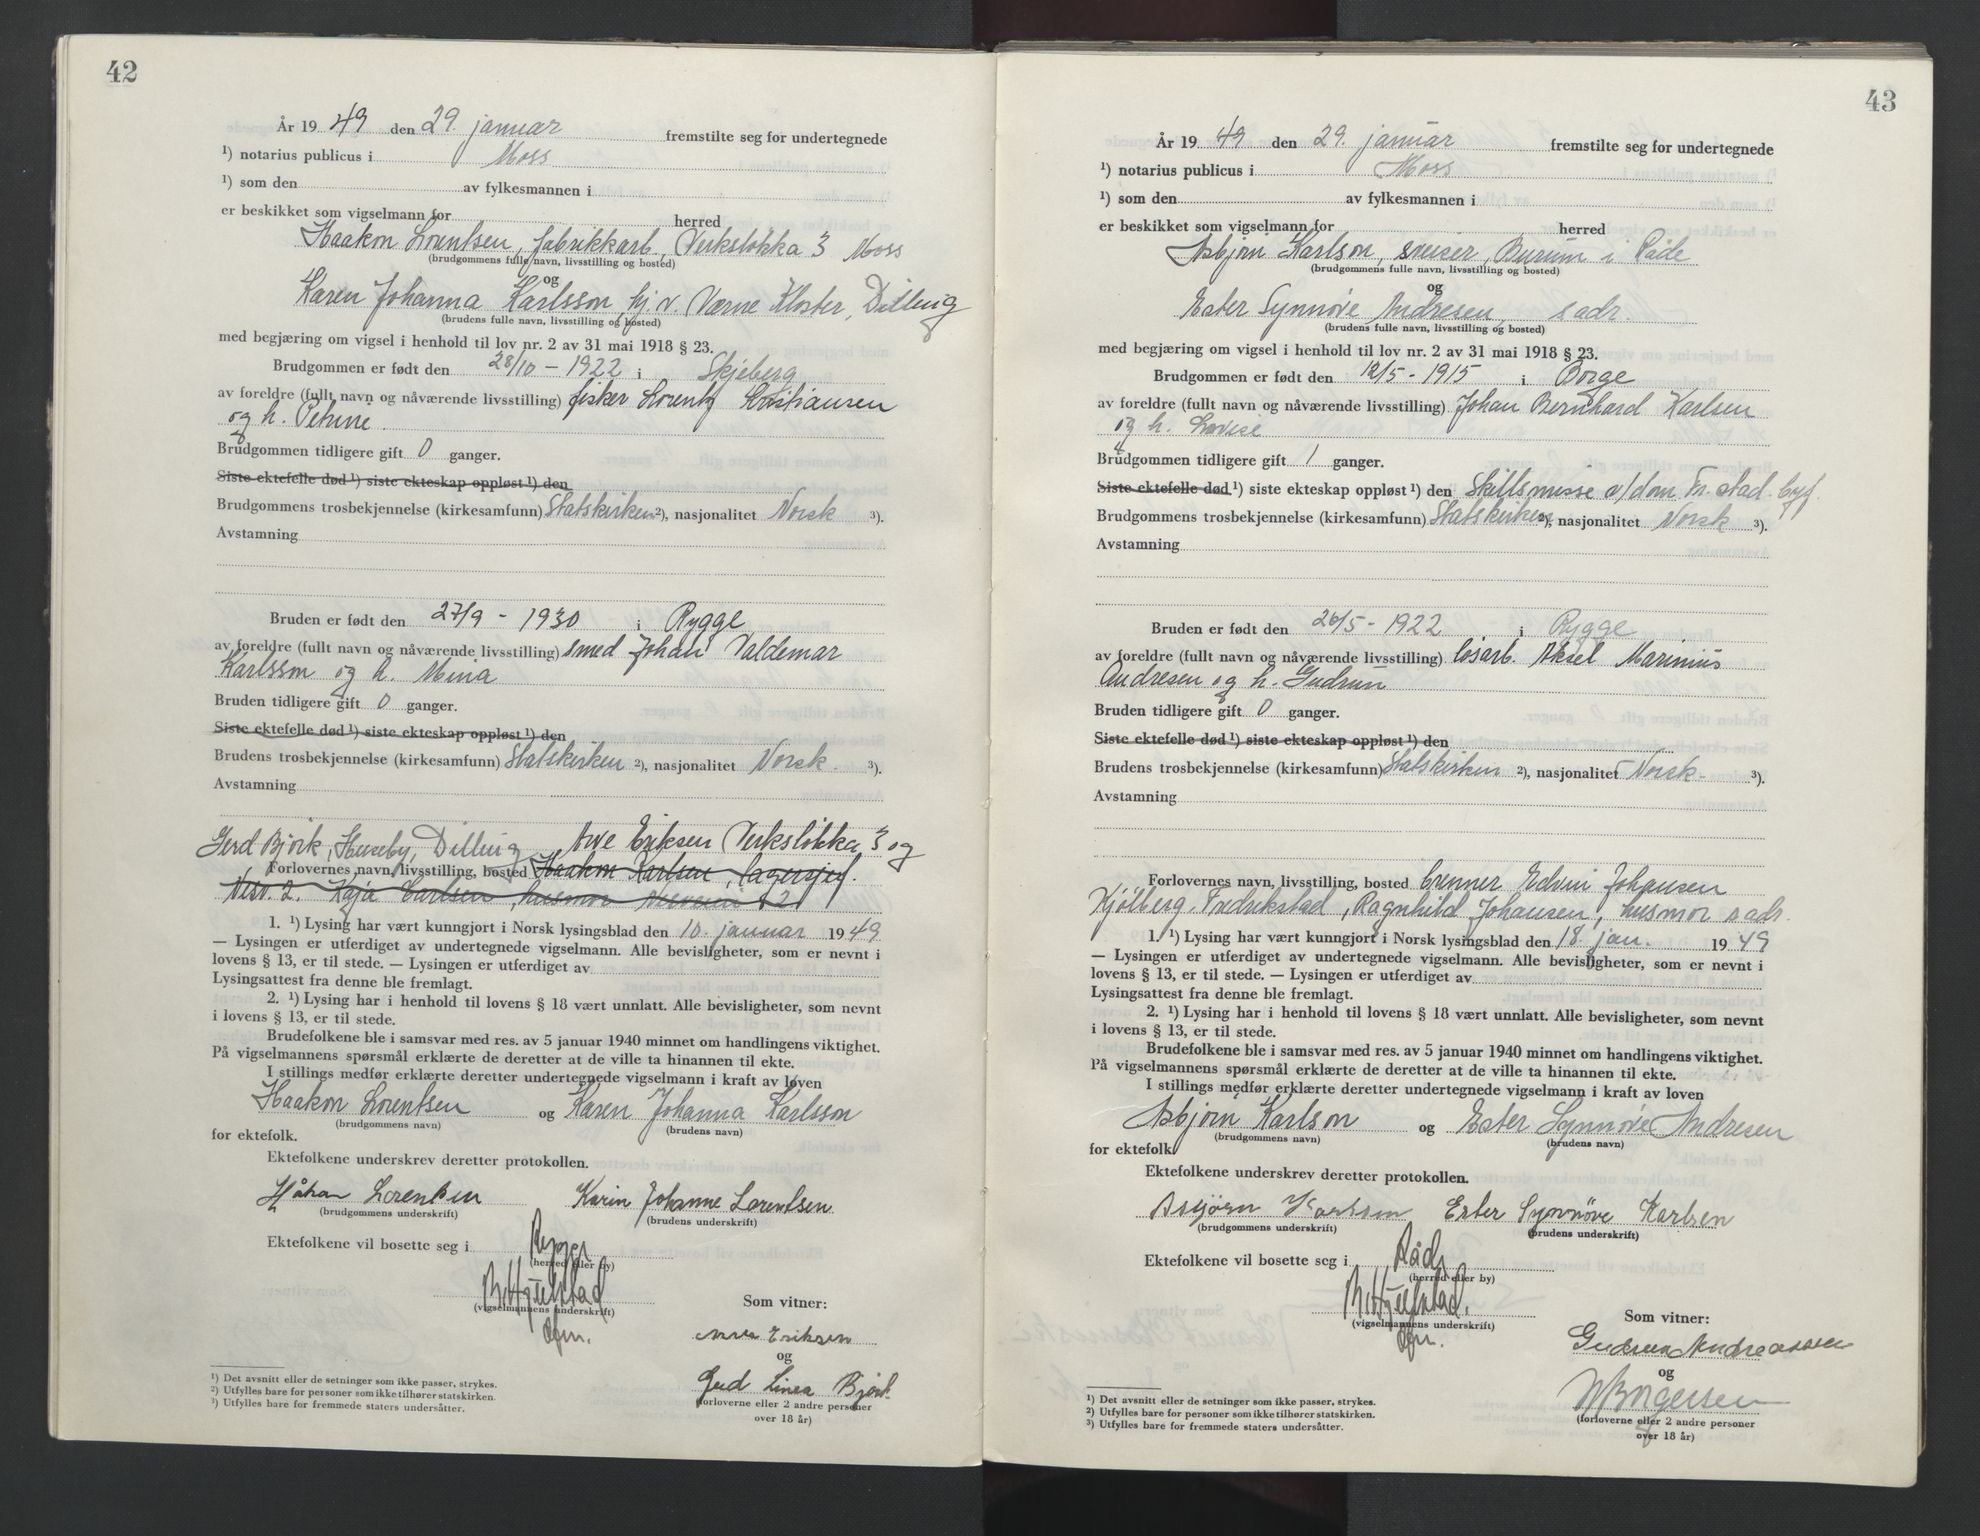 42
År 19 49 den 29. januar fremstilte seg for undertegnede
¹) notarius publicus i Moss
¹) som den av fylkesmannen i
er beskikket som vigselmann for herred
Haakon Lorentsen, fabrikkarb., Verksløkka 3 Moss
(brudgommens fulle navn, livsstilling og bosted)
og
Karen Johanna Karlsson, hj.v. Værne Kloster, Dilling
(brudens fulle navn, livsstilling og bosted)
med begjæring om vigsel i henhold til lov nr. 2 av 31 mai 1918 § 23.
Brudgommen er født den 28/10 - 1922 i Skjeberg
av foreldre (fullt navn og nåværende livsstilling) fisker Lorentz Kristiansen
og h. Petrine.
Brudgommen tidligere gift 0 ganger.
Siste ektefelle død ¹) siste ekteskap oppløst ¹) den
Brudgommens trosbekjennelse (kirkesamfunn) Statskirken ²), nasjonalitet Norsk ³).
Avstamning
Bruden er født den 27/9 - 1930 i Rygge
av foreldre (fullt navn og nåværende livsstilling) smed Johan Valdemar
Karlsson og h. Mina
Bruden tidligere gift 0 ganger.
Siste ektefelle død ¹) siste ekteskap oppløst ¹) den
Brudens trosbekjennelse (kirkesamfunn) Statskirken ²), nasjonalitet Norsk. ³).
Avstamning
Gerd Bjørk, Huseby, Dilling Arve Eriksen Verksløkka 3 og
Forlovernes navn, livsstilling, bosted Haakon Karlsen, lagersjef.
Nesv. 2. Kaja Carlsen, husmor Nesveien 2
1. ¹) Lysing har vært kunngjort i Norsk lysingsblad den 10. januar 19 49
— Lysingen er utferdiget av undertegnede vigselmann. Alle bevisligheter, som er nevnt i
lovens § 13, er til stede. — Lysingen er utferdiget av
Lysingsattest fra denne ble fremlagt.
2. ¹) Lysing har i henhold til lovens § 18 vært unnlatt. Alle bevisligheter, som nevnt
i lovens § 13, er til stede.
Brudefolkene ble i samsvar med res. av 5 januar 1940 minnet om handlingens viktighet.
På vigselmannens spørsmål erklærte de deretter at de ville ta hinannen til ekte.
I stillings medfør erklærte deretter undertegnede vigselmann i kraft av loven
Haakon Lorentsen og Karen Johanna Karlsson
(brudgommens navn) (brudens navn)
for ektefolk.
Ektefolkene underskrev deretter protokollen.
Håkan Lorentsen Karin Johanne Lorentsen
(brudgommens underskrift) (brudens underskrift)
Ektefolkene vil bosette seg i Rygge
(herred eller by)
(vigselmannens underskrift)
Som vitner:
Arve Eriksen
og
Gerd Linea Bjørk
(forloverne eller 2 andre personer
over 18 år)
¹) Det avsnitt eller de setninger som ikke passer, strykes.
²) Utfylles bare for personer som ikke tilhører statskirken.
³) Utfylles bare for fremmede staters undersåtter.
43
År 19 49 den 29. januar fremstilte seg for undertegnede
¹) notarius publicus i Moss
¹) som den av fylkesmannen i
er beskikket som vigselmann for herred
Asbjørn Karlson, sveiser, Burum i Råde
(brudgommens fulle navn, livsstilling og bosted)
og
Ester Synnøve Andresen, s adr.
(brudens fulle navn, livsstilling og bosted)
med begjæring om vigsel i henhold til lov nr. 2 av 31 mai 1918 § 23.
Brudgommen er født den 12/5 - 1915 i Borge
av foreldre (fullt navn og nåværende livsstilling) Johan Bernhard Karlsen
og h. Lovise
Brudgommen tidligere gift 1 ganger.
Siste ektefelle død ¹) siste ekteskap oppløst ¹) den Skillsmisse v/dom Fr.stad byf.
Brudgommens trosbekjennelse (kirkesamfunn) Statskirken ²), nasjonalitet Norsk ³).
Avstamning
Bruden er født den 26/5 - 1922 i Rygge
av foreldre (fullt navn og nåværende livsstilling) løsarb. Aksel Marinius
Andresen og h. Gudrun
Bruden tidligere gift 0 ganger.
Siste ektefelle død ¹) siste ekteskap oppløst ¹) den
Brudens trosbekjennelse (kirkesamfunn) Statskirken ²), nasjonalitet Norsk. ³).
Avstamning
Forlovernes navn, livsstilling, bosted brenner Edvin Johansen
Kjølberg. Fredrikstad, Ragnhild Johansen, husmor s adr.
1. ¹) Lysing har vært kunngjort i Norsk lysingsblad den 18. jan. 19 49
— Lysingen er utferdiget av undertegnede vigselmann. Alle bevisligheter, som er nevnt i
lovens § 13, er til stede. — Lysingen er utferdiget av
Lysingsattest fra denne ble fremlagt.
2. ¹) Lysing har i henhold til lovens § 18 vært unnlatt. Alle bevisligheter, som nevnt
i lovens § 13, er til stede.
Brudefolkene ble i samsvar med res. av 5 januar 1940 minnet om handlingens viktighet.
På vigselmannens spørsmål erklærte de deretter at de ville ta hinannen til ekte.
I stillings medfør erklærte deretter undertegnede vigselmann i kraft av loven
Asbjørn Karlson og Ester Synnøve Andresen
(brudgommens navn) (brudens navn)
for ektefolk.
Ektefolkene underskrev deretter protokollen.
Asbjørn Karlson Ester Synnøve Karlsen
(brudgommens underskrift) (brudens underskrift)
Ektefolkene vil bosette seg i Råde
(herred eller by)
(vigselmannens underskrift)
Som vitner:
Gudrun Andreassen
og
Borgersen
(forloverne eller 2 andre personer
over 18 år)
¹) Det avsnitt eller de setninger som ikke passer, strykes.
²) Utfylles bare for personer som ikke tilhører statskirken.
³) Utfylles bare for fremmede staters undersåtter.